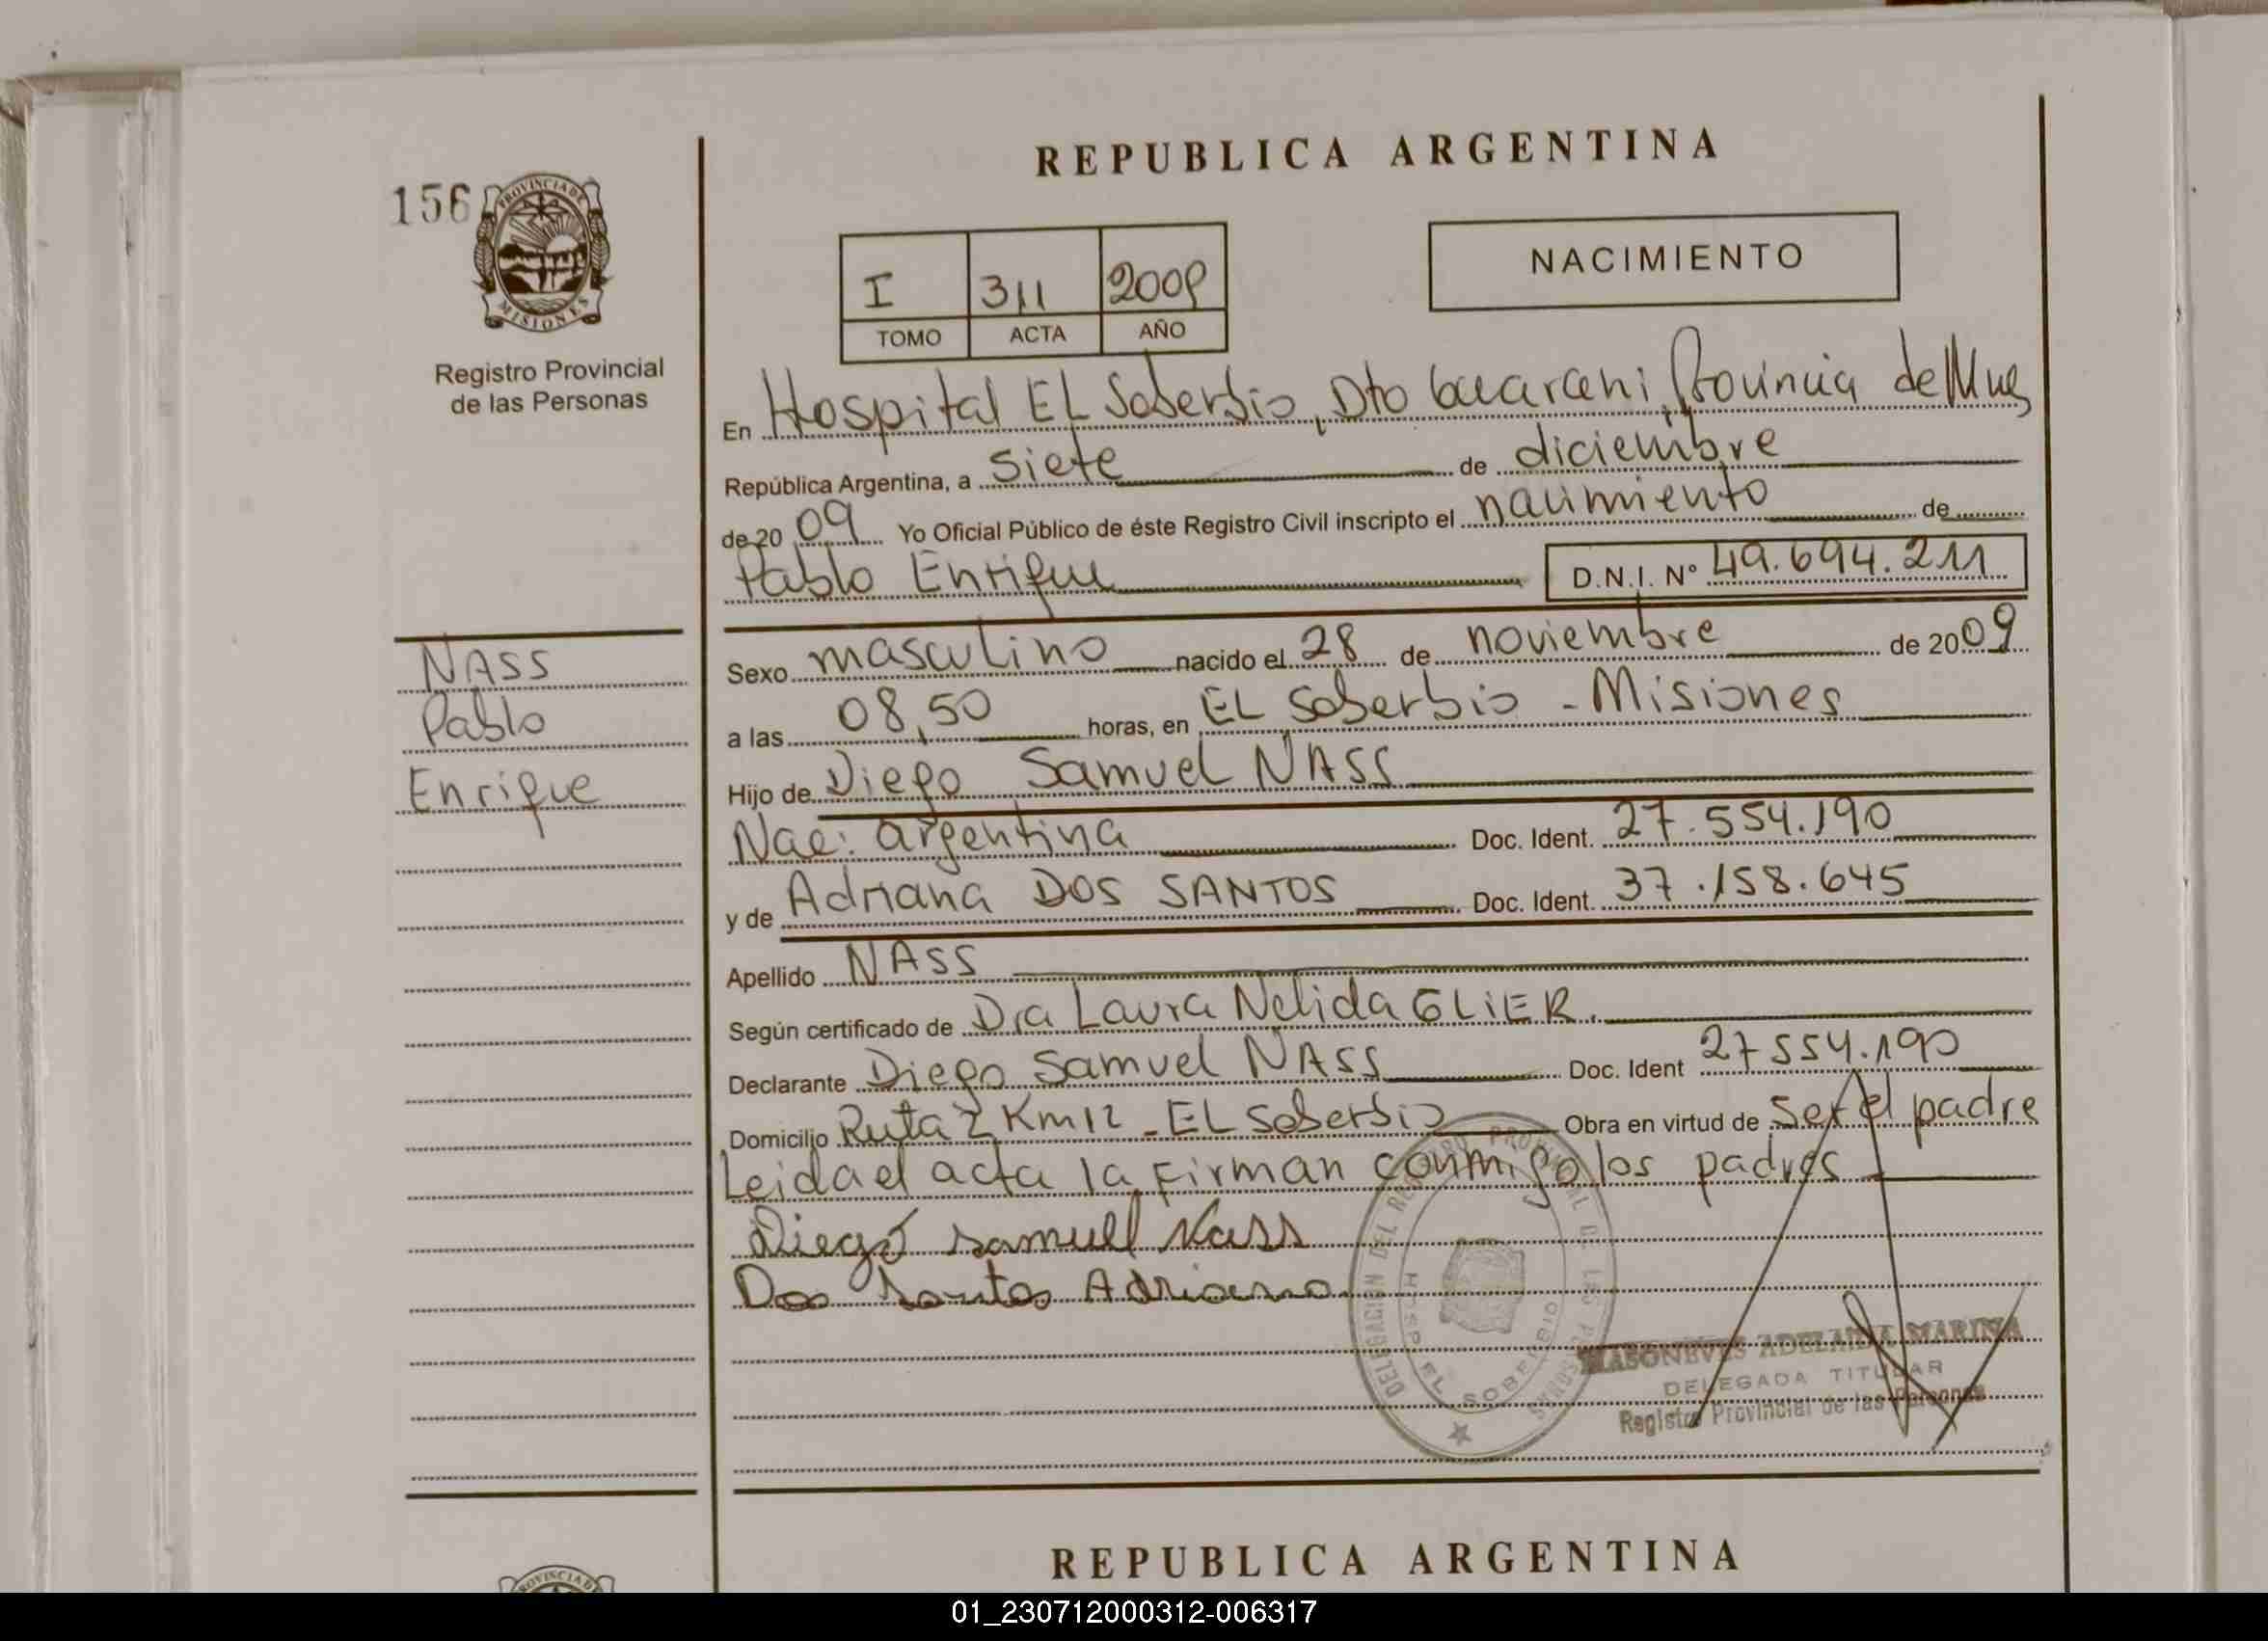 REPUBLICA ARGENTINA
156
PROVINCIA DE
MISIONES
Registro Provincial
de las Personas
I 311 2009
TOMO ACTA AÑO
NACIMIENTO
En Hospital EL Soberbio, Dto Guarani, Provincia de Mnes
República Argentina, a siete de diciembre
de 20 09 Yo Oficial Público de éste Registro Civil inscripto el nacimiento de
Pablo Enrique D.N.I. Nº 49.694.211
Sexo masculino nacido el 28 de noviembre de 2009
a las 08,50 horas, en EL Soberbio - Misiones
Hijo de Diego Samuel NASS
Nac: argentina Doc. Ident. 27.554.190
y de Adriana DOS SANTOS Doc. Ident. 37.158.645
Apellido NASS
Según certificado de Dra Laura Nelida GLIER.
Declarante Diego Samuel NASS Doc. Ident 27554.190
Domicilio Ruta 2 Km 12 - EL Soberbio Obra en virtud de ser el padre
Leida el acta la firman conmigo los padres
Diego Samuel Nass
Dos Santos Adriana
NASS
Pablo
Enrique
DELEGACION DEL REGISTRO PROVINCIAL DE LAS PERSONAS
HOSP. EL SOBERBIO
ADELAIDA MARINA
DELEGADA TITULAR
Registro Provincial de las Personas
REPUBLICA ARGENTINA
PROVINCIA DE
01_230712000312-006317